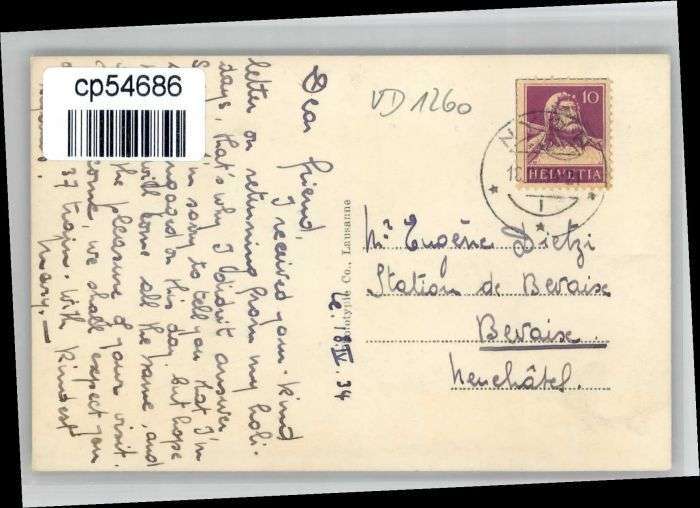 cp54686
VD 1260
10
HELVETIA
Dear friend,
I received your kind
letter on returning from my holi-
days, that's why I didn't answer
I'm sorry to tell you that I'm
engaged on this day. but hope
will come all the same, and
the pleasure of your visit.
come, we shall expect you
37 train. With kindest
Mary.—
Le 18.IV.34
Co., Lausanne
Mr. Eugène Dietzi
Station de Bevaix
Bevaix.
Neuchâtel.